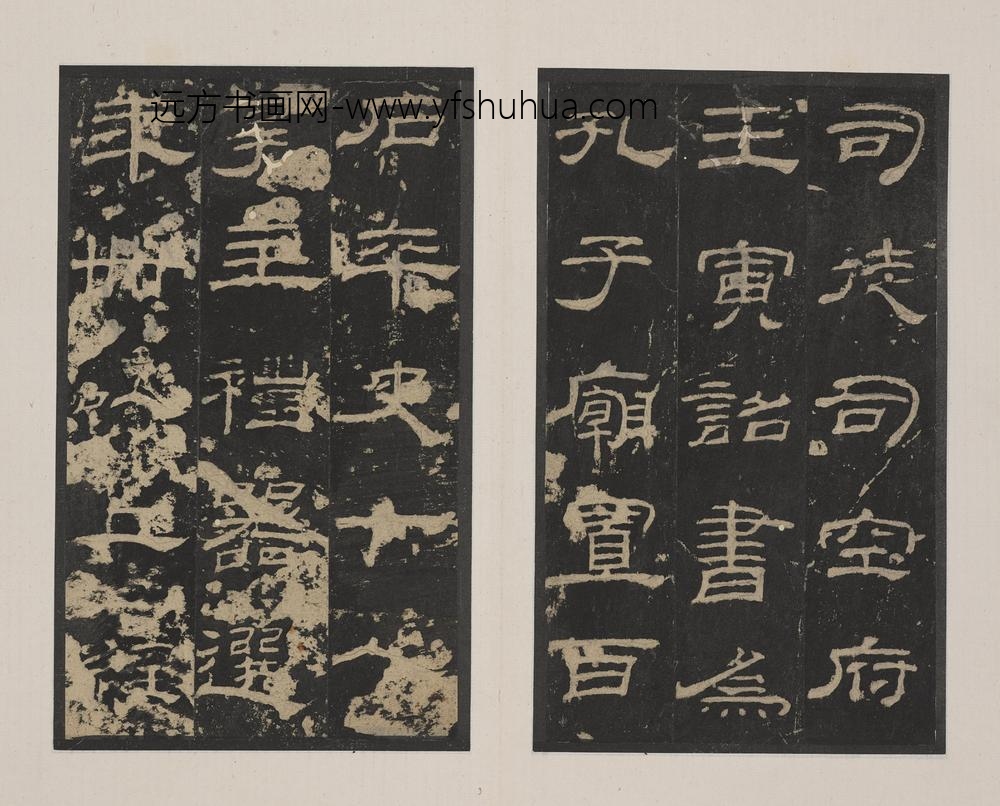 远方书画网-www.yfshuhua.com
司徒司空府
壬寅詔書為
孔子廟置百
石卒史一人
主禮器選
年卌以上經